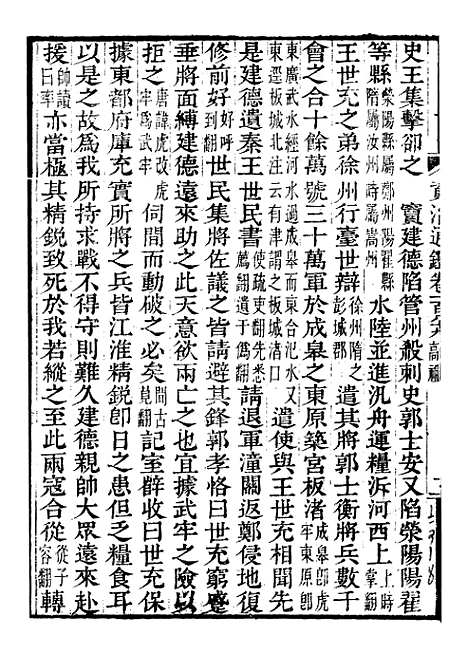 史王集擊卻之　竇建德陷管州殺刺史郭士安又陷滎陽陽翟
等縣滎陽縣屬鄭州陽翟縣隋屬汝州時屬嵩州水陸並進汎舟運糧泝河西上上時掌翻
王世充之弟徐州行臺世辯徐州隋之彭城郡遣其將郭士衡將兵數千
會之合十餘萬號三十萬軍於成皋之東原築宮板渚成皋即虎牢東原即
東廣武水經河水過成皋而東合汜水又東逕板城北注云有津謂之板城渚口遣使與王世充相聞先
是建德遺秦王世民書使疏吏翻先悉薦翻遺于偽翻請退軍潼關返鄭侵地復
修前好好呼到翻世民集將佐議之皆請避其鋒郭孝恪曰世充窮蹙
垂將面縛建德遠來助之此天意欲兩亡之也宜據武牢之險以
拒之唐諱虎改虎牢為武牢伺間而動破之必矣間古莧翻記室薛收曰世充保
據東都府庫充實所將之兵皆江淮精銳即日之患但乏糧食耳
以是之故為我所持求戰不得守則難久建德親帥大眾遠來赴
援帥讀曰率亦當極其精銳致死於我若縱之至此兩寇合從從子容翻轉